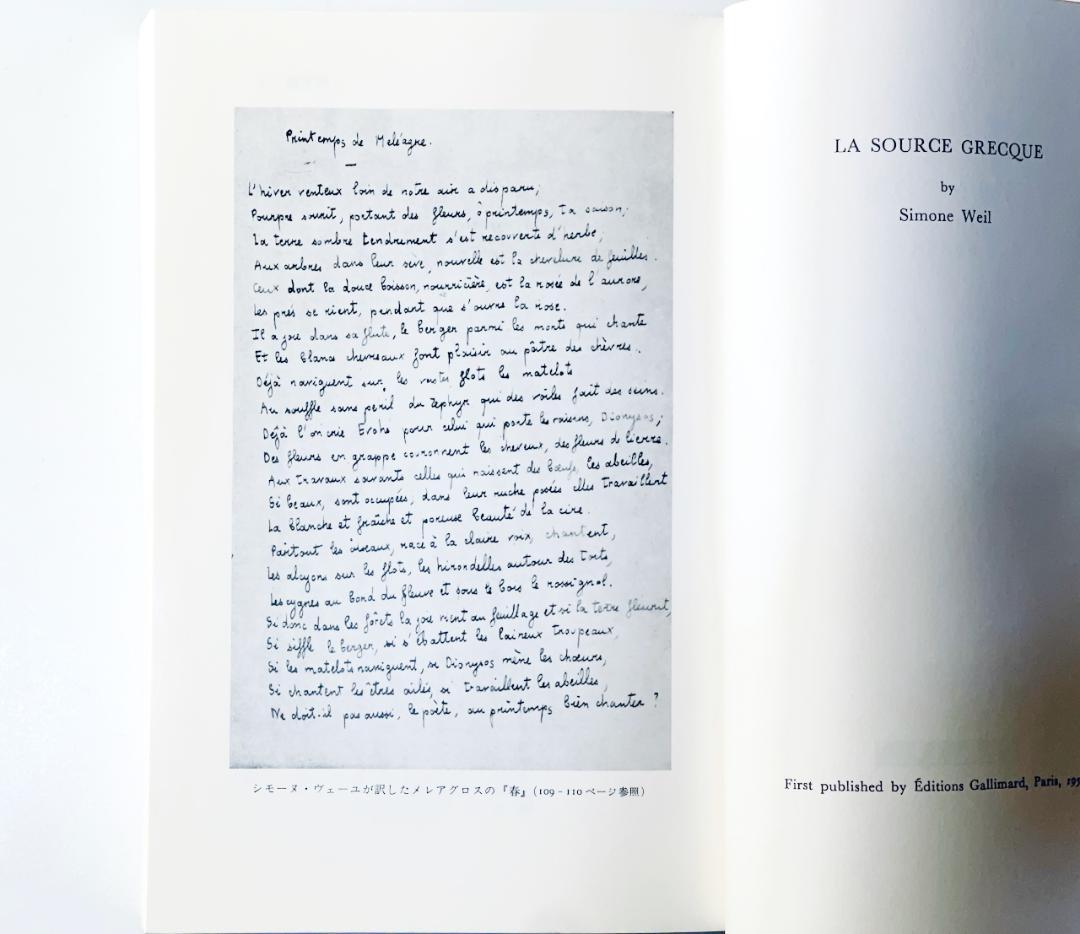 Printemps de Méléagre.
L'hiver venteux loin de notre air a disparu;
Pourpre sourit, portant des fleurs, ô printemps, ta saison;
La terre sombre tendrement s'est recouverte d'herbe;
Aux arbres dans leur sève, nouvelle est la chevelure de feuilles.
Ceux dont la douce boisson, nourricière, est la rosée de l'aurore,
Les prés se rient, pendant que s'ouvre la rose.
Il a joie dans sa flute, le berger parmi les monts qui chante
Et les blancs chevreaux font plaisir au pâtre des chèvres.
Déjà naviguent sur les vastes flots les matelots
Au souffle sans peril du zéphyr qui des voiles fait des seins.
Déjà l'on crie Evohé pour celui qui porte les raisins, Dionysos;
Des fleurs en grappe couronnent les cheveux, des fleurs de lierre.
Aux travaux savants celles qui naissent des bœufs, les abeilles,
Si beaux, sont occupées; dans leur ruche posées elles travaillent
La blanche et fraîche et poreuse beauté de la cire.
Partout les oiseaux, race à la claire voix, chantent,
Les alcyons sur les flots, les hirondelles autour des toits,
Les cygnes au bord du fleuve et sous le bois le rossignol.
Si donc dans les forêts la joie vient au feuillage et si la terre fleurit,
Si siffle le berger, si s'ébattent les laineux troupeaux,
Si les matelots naviguent, si Dionysos mène les chœurs,
Si chantent les êtres ailés, si travaillent les abeilles,
Ne doit-il pas aussi, le poète, au printemps bien chanter ?
シモーヌ・ヴェーユが訳したメレアグロスの『春』(109-110ページ参照)
LA SOURCE GRECQUE
by
Simone Weil
First published by Éditions Gallimard, Paris,